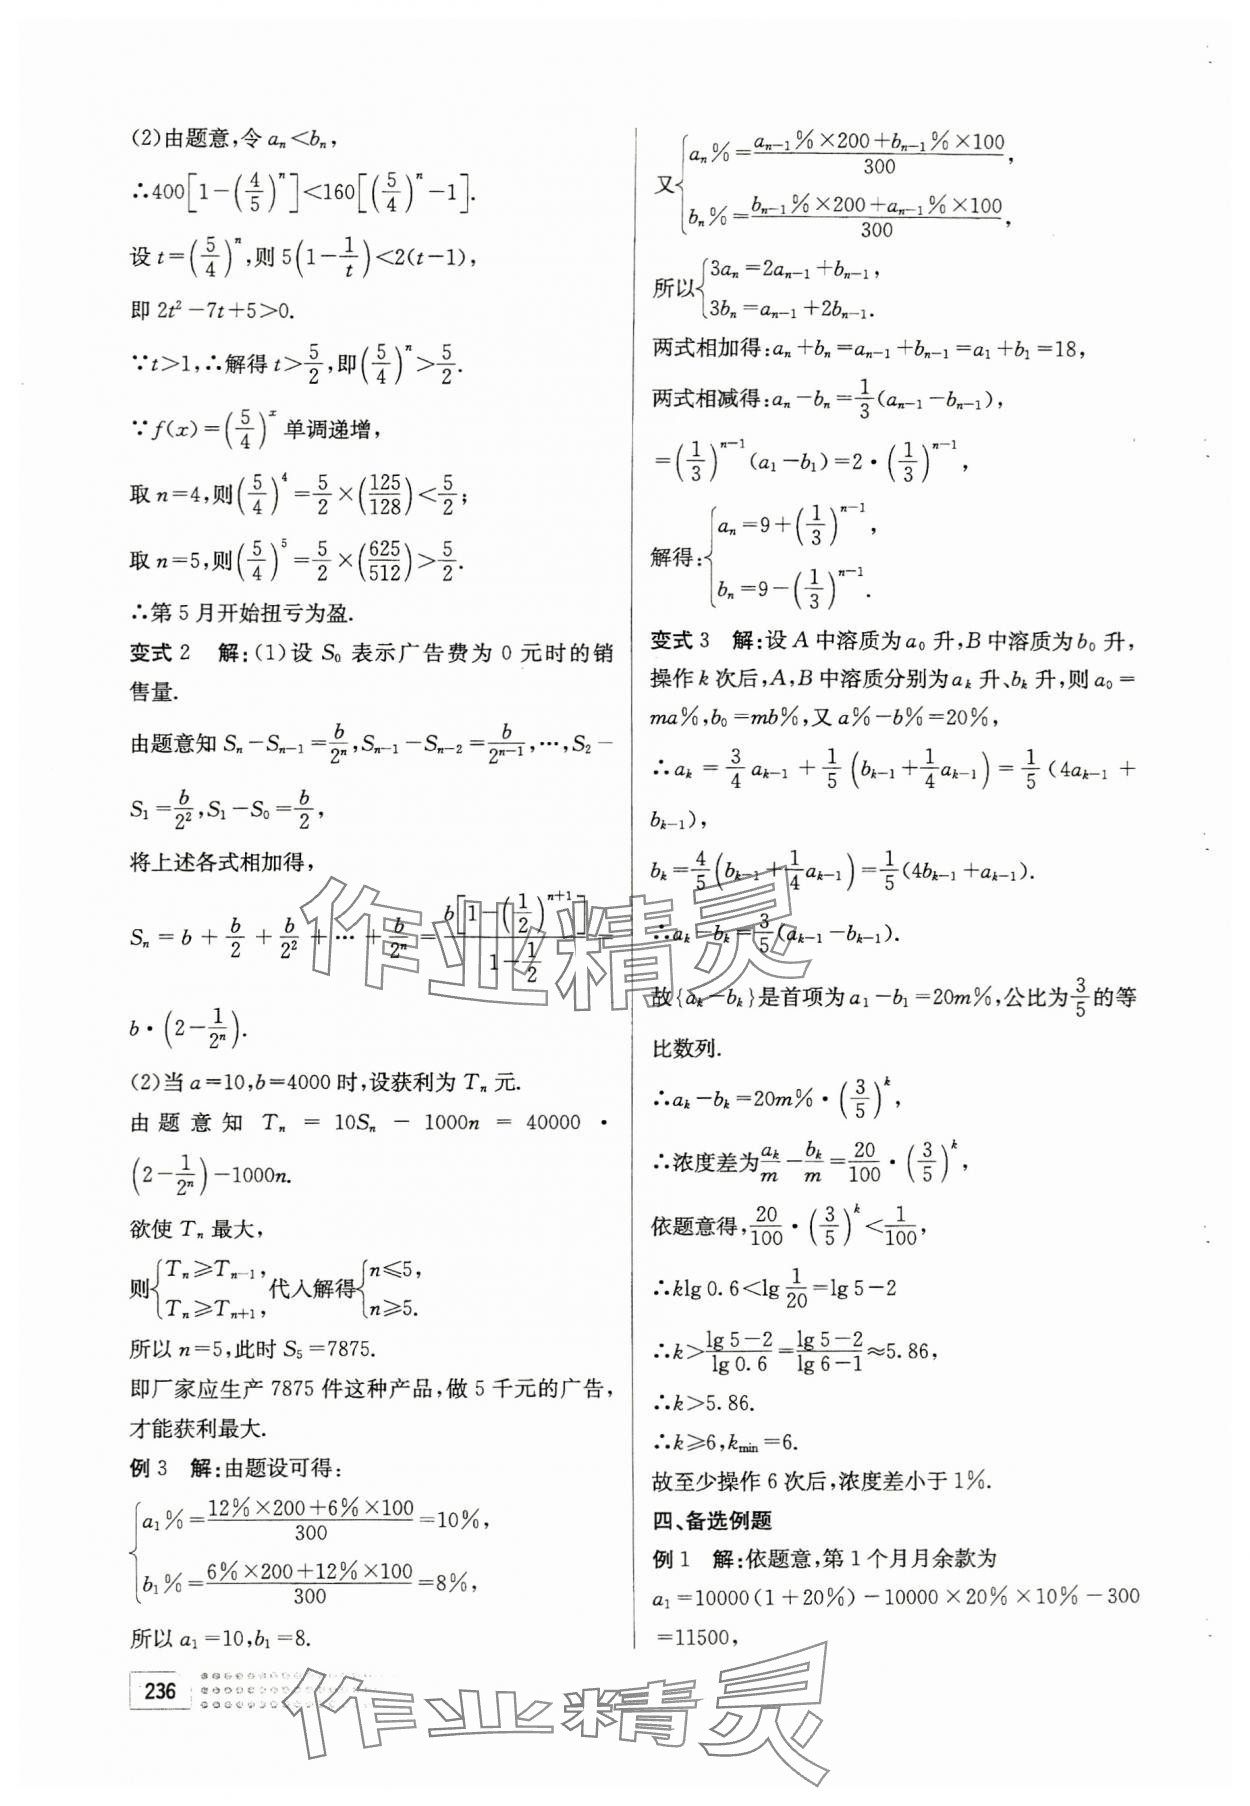 (2)由题意,令 aₙ<bₙ,
∴400[1-(4/5)ⁿ]<160[(5/4)ⁿ-1].
设 t=(5/4)ⁿ,则 5(1-1/t)<2(t-1),
即 2t²-7t+5>0.
∵t>1,∴解得 t>5/2,即(5/4)ⁿ>5/2.
∵f(x)=(5/4)ˣ 单调递增,
取 n=4,则(5/4)⁴=5/2×(125/128)<5/2;
取 n=5,则(5/4)⁵=5/2×(625/512)>5/2.
∴第 5 月开始扭亏为盈.
变式 2 解:(1)设 S₀ 表示广告费为 0 元时的销
售量.
由题意知 Sₙ-Sₙ₋₁=b/2ⁿ,Sₙ₋₁-Sₙ₋₂=b/2ⁿ⁻¹,…,S₂-
S₁=b/2²,S₁-S₀=b/2,
将上述各式相加得,
Sₙ=b+b/2+b/2²+…+b/2ⁿ=b[1-(1/2)ⁿ⁺¹]/(1-1/2)=
b·(2-1/2ⁿ).
(2)当 a=10,b=4000 时,设获利为 Tₙ 元.
由题意知 Tₙ=10Sₙ-1000n=40000·
(2-1/2ⁿ)-1000n.
欲使 Tₙ 最大,
则{Tₙ≥Tₙ₋₁, Tₙ≥Tₙ₊₁, 代人解得{n≤5, n≥5.
所以 n=5,此时 S₅=7875.
即厂家应生产 7875 件这种产品,做 5 千元的广告,
才能获利最大.
例 3 解:由题设可得:
{a₁%=(12%×200+6%×100)/300=10%,
b₁%=(6%×200+12%×100)/300=8%,
所以 a₁=10,b₁=8.
236
又{aₙ%=(aₙ₋₁%×200+bₙ₋₁%×100)/300,
bₙ%=(bₙ₋₁%×200+aₙ₋₁%×100)/300,
所以{3aₙ=2aₙ₋₁+bₙ₋₁,
3bₙ=aₙ₋₁+2bₙ₋₁.
两式相加得:aₙ+bₙ=aₙ₋₁+bₙ₋₁=a₁+b₁=18,
两式相减得:aₙ-bₙ=1/3(aₙ₋₁-bₙ₋₁),
=(1/3)ⁿ⁻¹(a₁-b₁)=2·(1/3)ⁿ⁻¹,
解得:{aₙ=9+(1/3)ⁿ⁻¹,
bₙ=9-(1/3)ⁿ⁻¹.
变式 3 解:设 A 中溶质为 a₀ 升,B 中溶质为 b₀ 升,
操作 k 次后,A,B 中溶质分别为 aₖ 升、bₖ 升,则 a₀=
ma%,b₀=mb%,又 a%-b%=20%,
∴aₖ=3/4 aₖ₋₁+1/5(bₖ₋₁+1/4 aₖ₋₁)=1/5(4aₖ₋₁+
bₖ₋₁),
bₖ=4/5(bₖ₋₁+1/4 aₖ₋₁)=1/5(4bₖ₋₁+aₖ₋₁).
∴aₖ-bₖ=3/5(aₖ₋₁-bₖ₋₁).
故{aₖ-bₖ}是首项为 a₁-b₁=20m%,公比为3/5的等
比数列.
∴aₖ-bₖ=20m%·(3/5)ᵏ,
∴浓度差为aₖ/m-bₖ/m=20/100·(3/5)ᵏ,
依题意得,20/100·(3/5)ᵏ<1/100,
∴klg 0.6<lg 1/20=lg 5-2
∴k>(lg 5-2)/(lg 0.6)=(lg 5-2)/(lg 6-1)≈5.86,
∴k>5.86.
∴k≥6,kₘᵢₙ=6.
故至少操作 6 次后,浓度差小于 1%.
四、备选例题
例 1 解:依题意,第 1 个月月余款为
a₁=10000(1+20%)-10000×20%×10%-300
=11500,
作业精灵
作业精灵